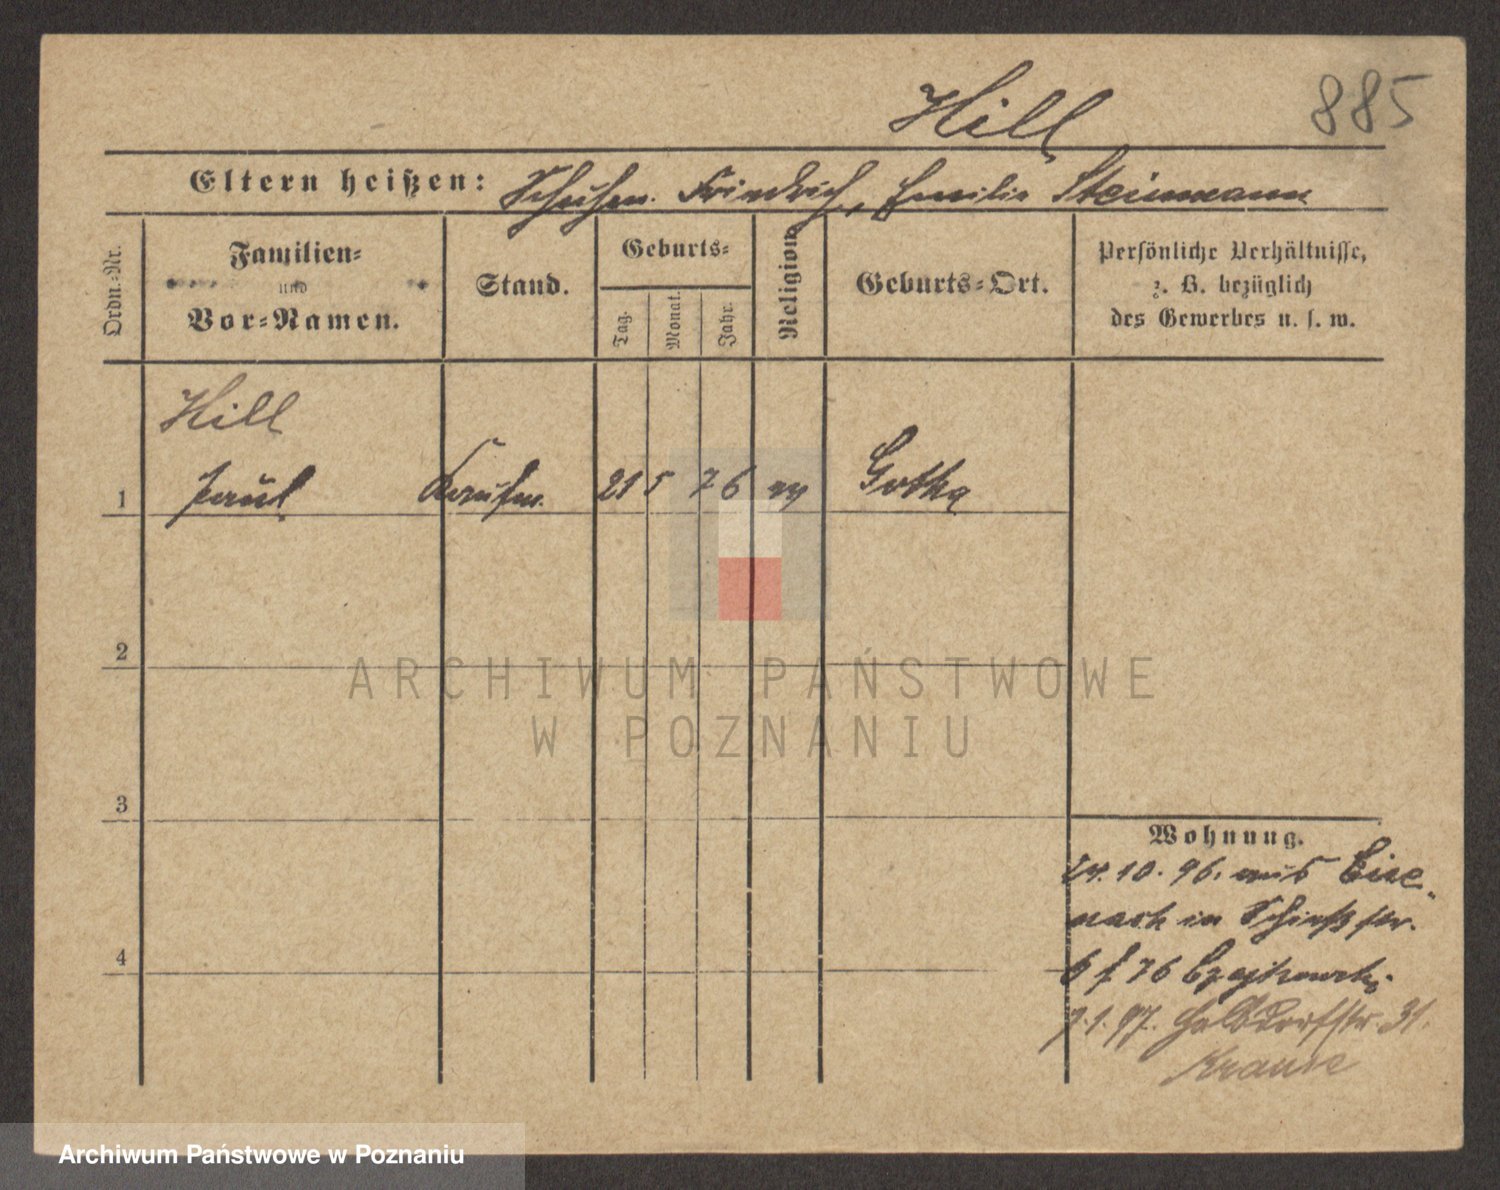 Hill 885
Eltern heißen: Friedrich, Emilie Steinmann
Ordn.-Nr.
Familien-
und
Vor-Namen.
Stand.
Geburts-
Tag.
Monat.
Jahr.
Religion
Geburts-Ort.
Persönliche Verhältnisse,
z. B. bezüglich
des Gewerbes u. s. w.
Hill
1 Paul Kaufm. 21 5 76 ev Gotha
2
ARCHIWUM PAŃSTWOWE
W POZNANIU
3
Wohnung.
10. 96. aus Eise-
nach in Schießstr.
6 f 76
7.1.97. 31.
Krause
4
Archiwum Państwowe w Poznaniu